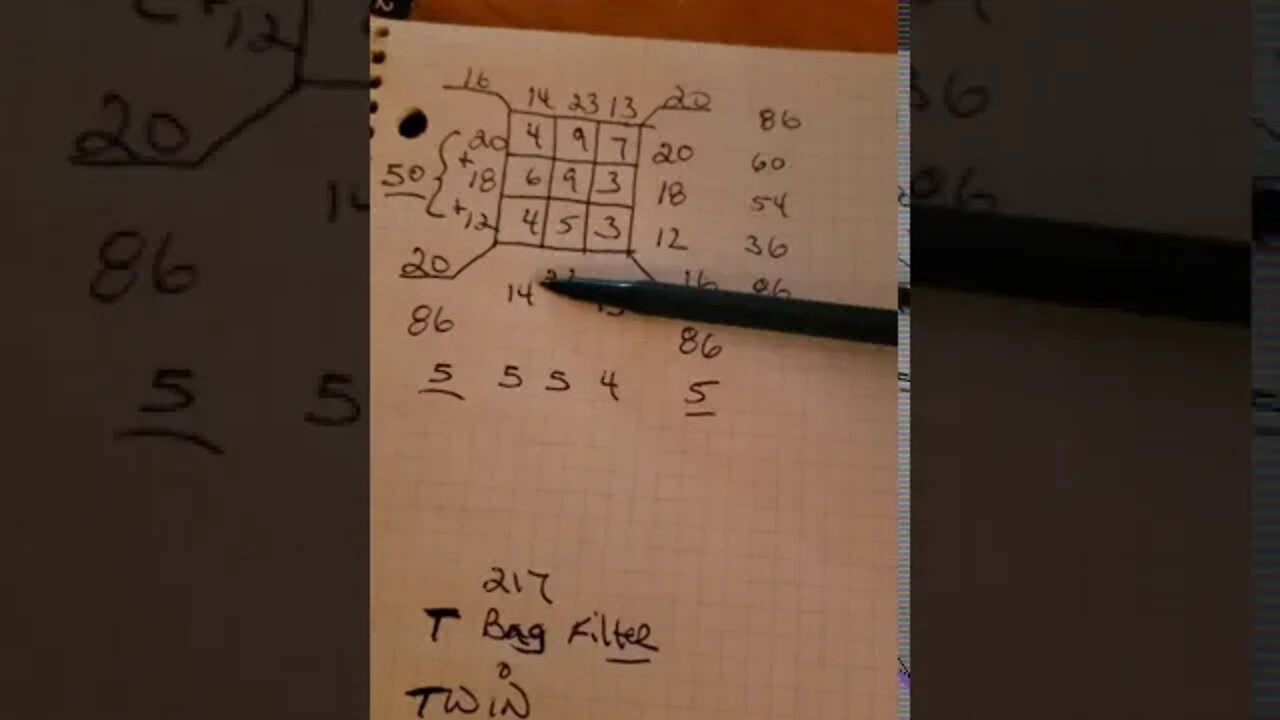 16 14 23 13 20 86
20 4 9 7 20 60
50 + 18 6 9 3 18 54
+ 12 4 5 3 12 36
20 14 16 86
86 86
5 5 5 4 5
217
T Bag Filter
TWIN